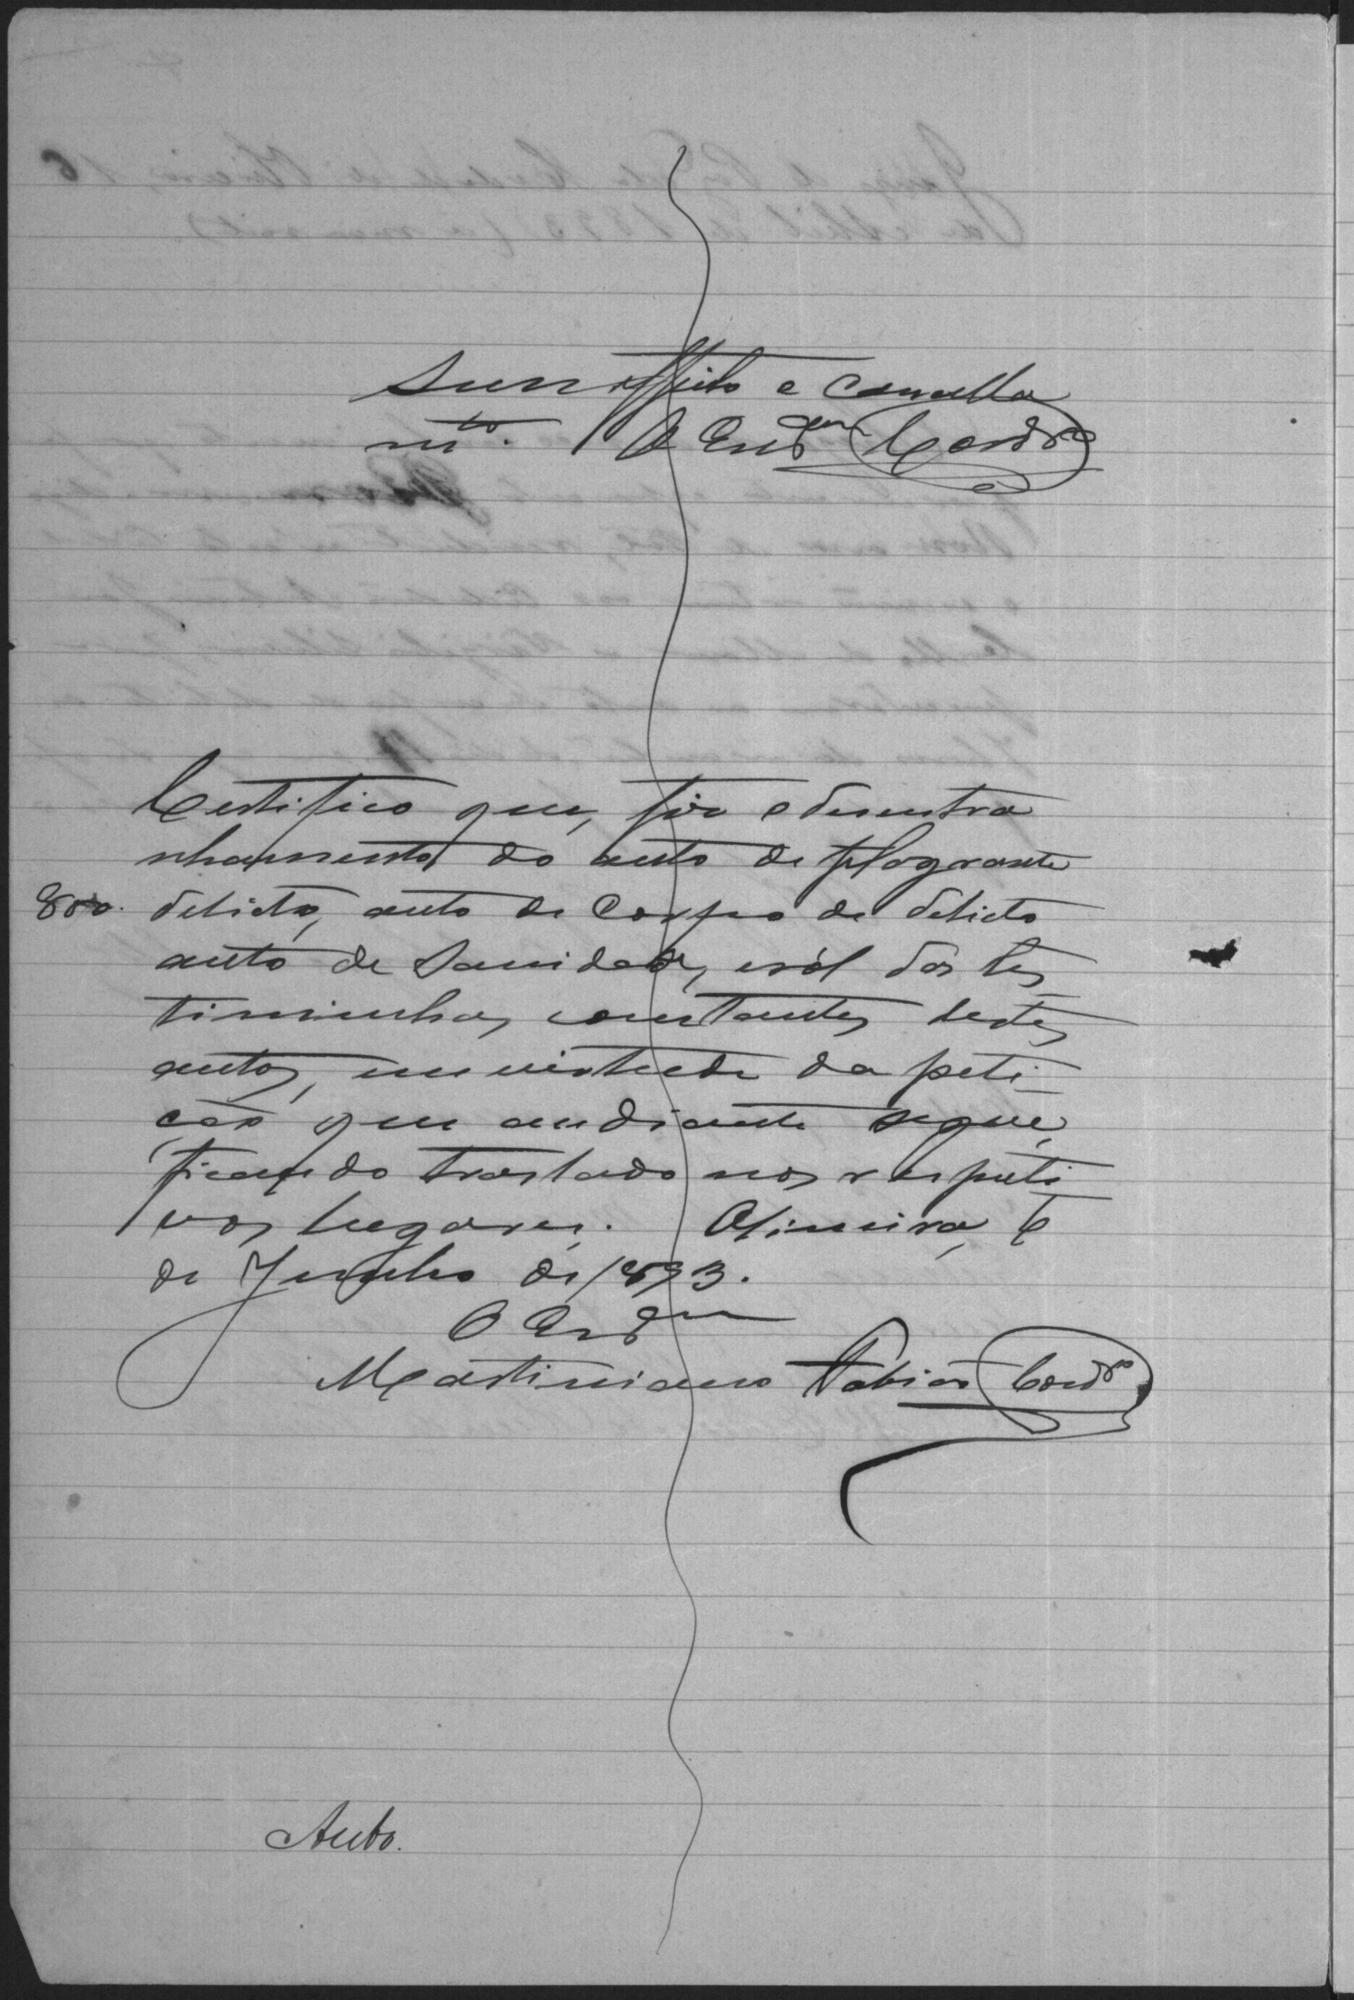 Sem effeito e cancella
mto. O Escram Cordro
Certifico que, fiz o desentra
nhamento do auto de flagrante
800. delicto, auto de corpo de delicto
auto de sanidade, ról das tes
timunhas, constantes destes
autos, em virtude da peti-
ção que andiante segue,
ficando traslado nos respecti
vos lugares. Oliveira, 6
de Junho de 1893.
O Escram
Martiniano Fabião Cordro
Auto.